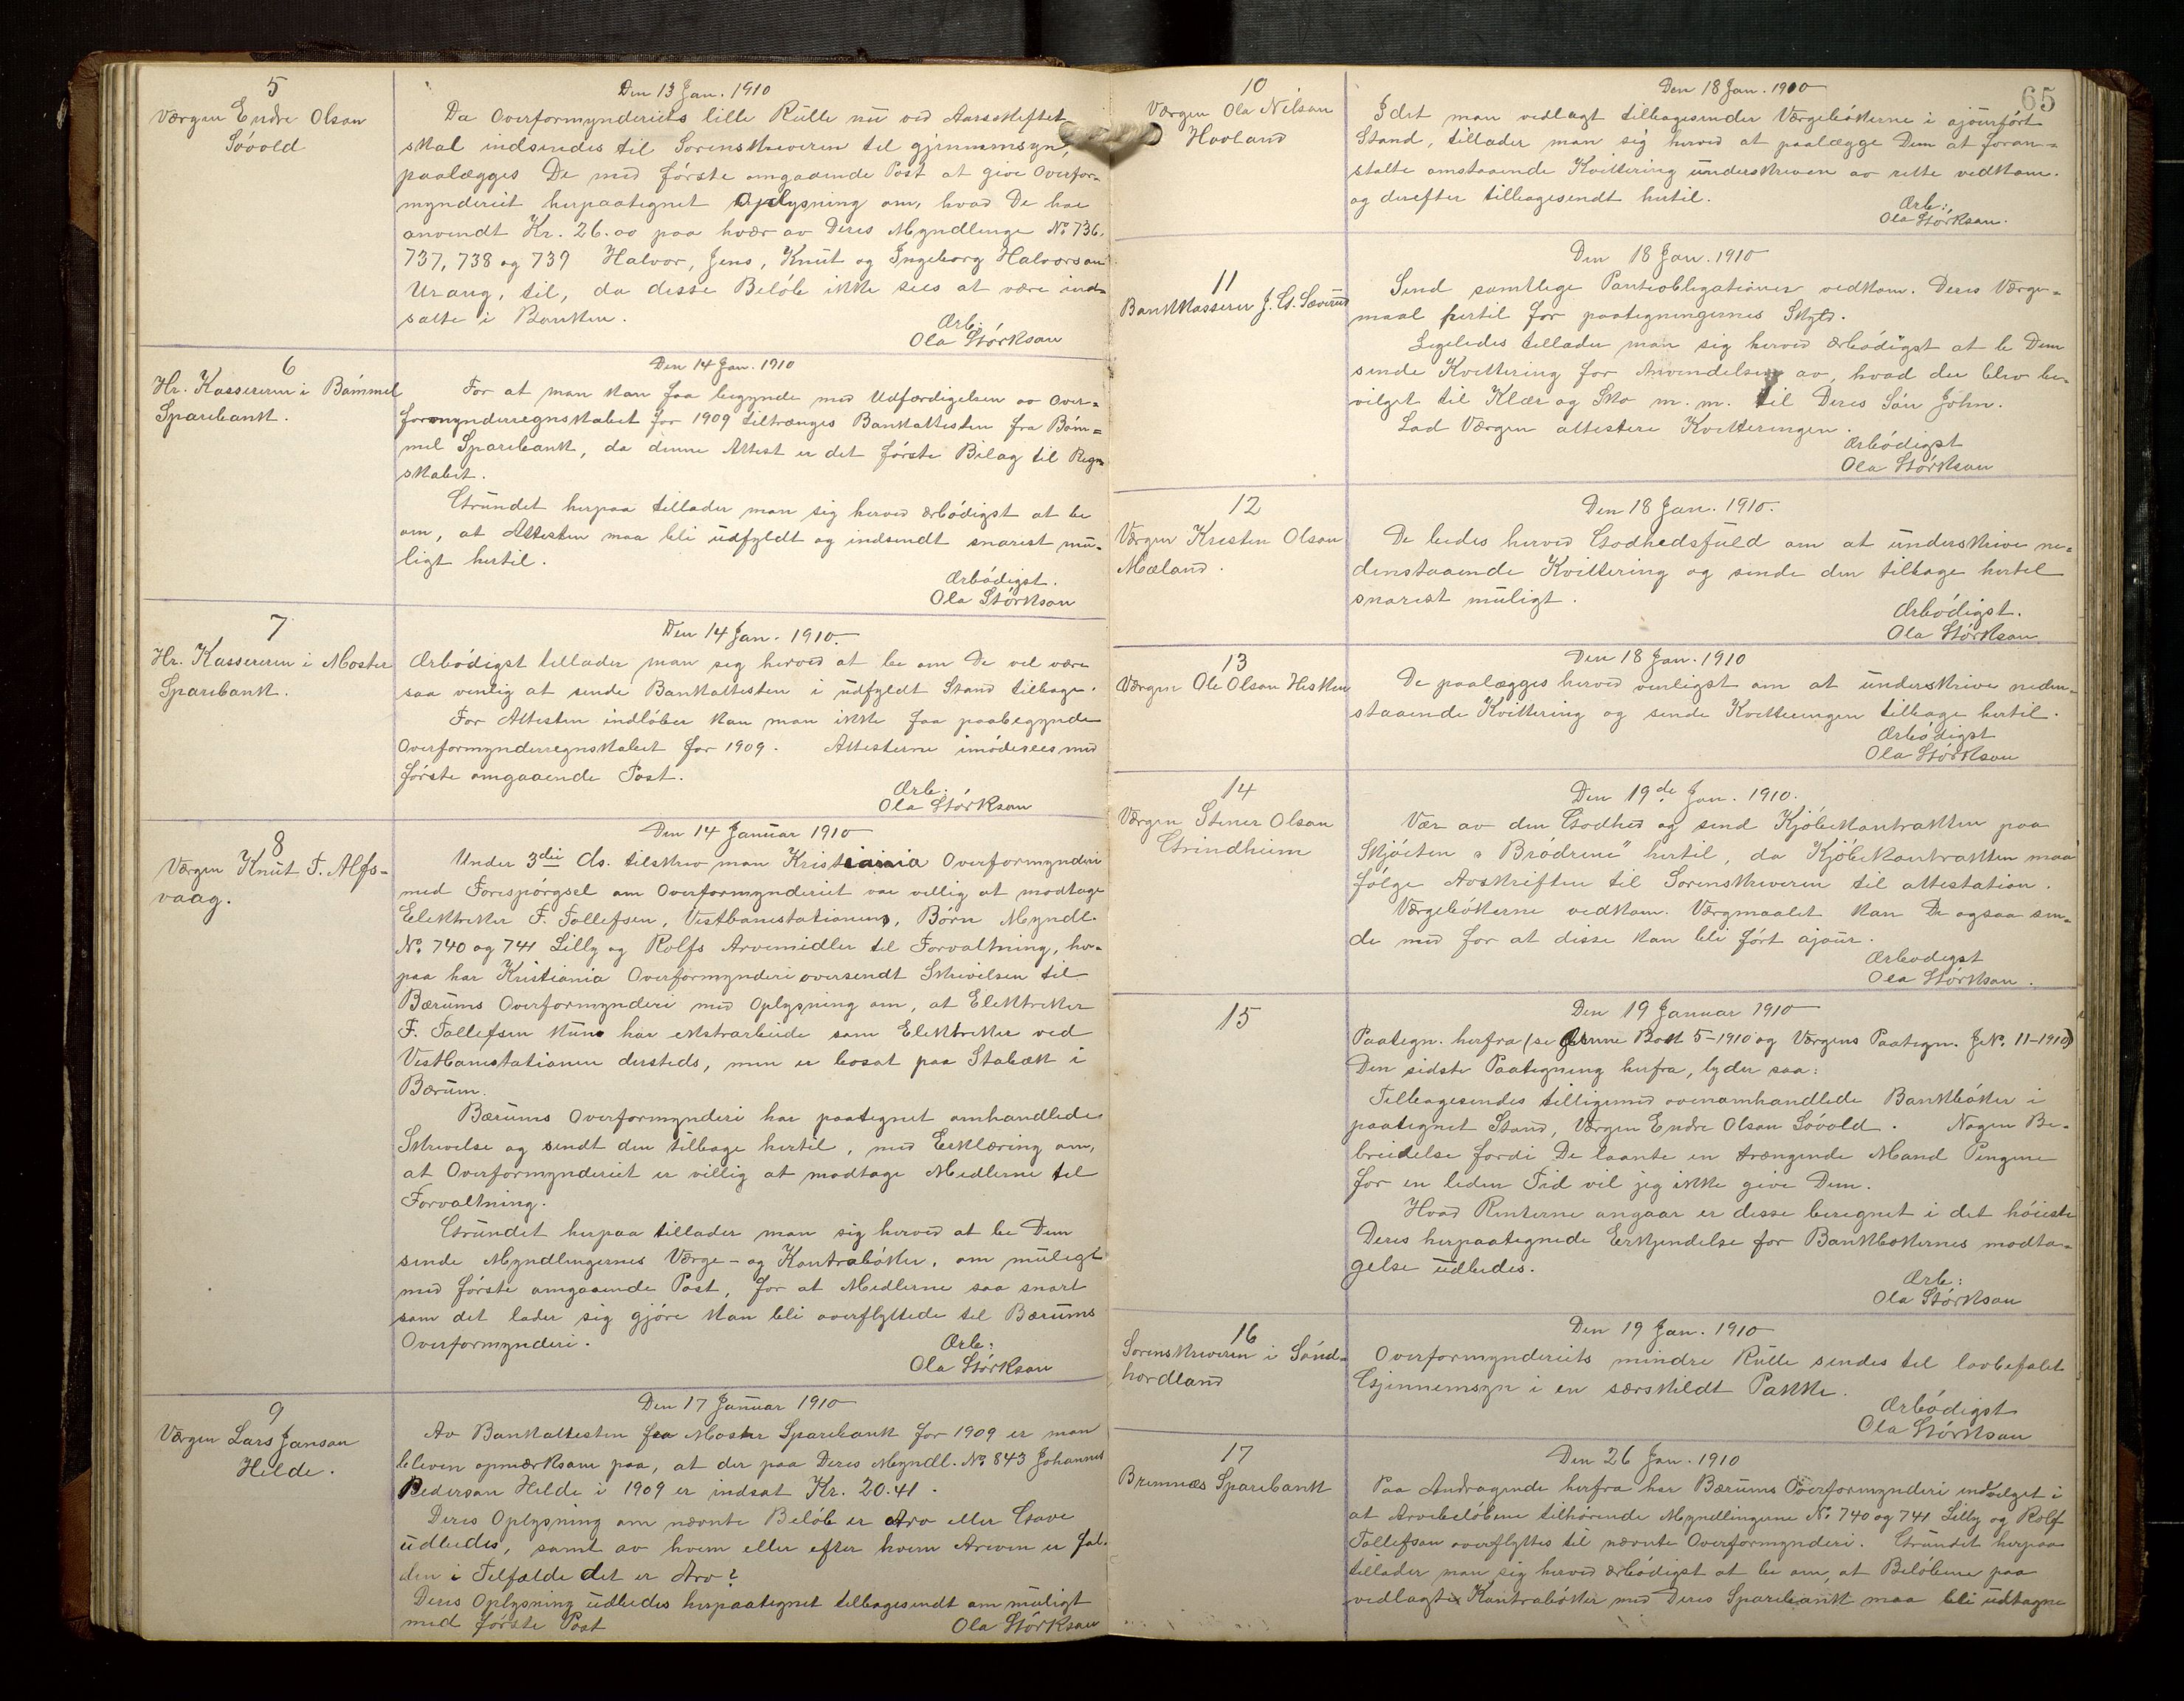 5
Værgen Endre Olson
Sövold
Den 13 Jan. 1910
Da Overformynderiets lille Rulle nu ved Aarsskiftet
skal indsendes til Sorenskriveren til gjennemsyn,
paalægges De med förste omgaaende Post at give Overfor-
mynderiet herpaategnet Oplysning om, hvad De har
anvendt Kr. 26.00 paa hvær av Deres Myndlinge No 736,
737, 738 og 739 Halvor, Jens, Knut og Ingeborg Halvorson
Urang, til, da disse Belöb ikke sees at være ind-
satte i Banken.
Ærb.
Ola Störkson
6
Hr. Kassereren i Bömmel
Sparebank.
Den 14 Jan. 1910
For at man kan faa begynde med Udfærdigelsen av Over-
formynderregnskabet for 1909 tiltrænges Bankattesten fra Böm-
mel Sparebank, da denne Attest er det förste Bilag til Regn-
skabet.
Grundet herpaa tillader man sig herved ærbödigst at be
om, at Attesten maa bli udfyldt og indsendt snarest mu-
ligt hertil.
Ærbödigst.
Ola Störkson
7
Hr. Kassereren i Moster
Sparebank.
Den 14 Jan. 1910.
Ærbödigst tillader man sig herved at be om De vil være
saa venlig at sende Bankattesten i udfyldt Stand tilbage.
Før Attesten indlöber kan man ikke faa paabegynde
Overformynderregnskabet for 1909. Attesterne imödesees med
förste omgaaende Post.
Ærb.
Ola Störkson
8
Værgen Knut T. Alfs-
vaag.
Den 14 Januar 1910
Under 3die ds. tilskrev man Kristiania Overformynderi
med Forespörgsel om Overformynderiet var villig at modtage
Elektriker F. Tollefsen, Vestbanestationens, Börn Myndl.
No. 740 og 741 Lilly og Rolfs Arvemidler til Forvaltning, her-
paa har Kristiania Overformynderi oversendt Skrivelsen til
Bærums Overformynderi med Oplysning om, at Elektriker
F. Tollefsen kun har ekstrarbeide som Elektriker ved
Vestbanestationen dersteds, men er bosat paa Stabæk i
Bærum.
Bærums Overformynderi har paategnet omhandlede
Skrivelse og sendt den tilbage hertil, med Erklæring om,
at Overformynderiet er villig at modtage Midlerne til
Forvaltning.
Grundet herpaa tillader man sig herved at be Dem
sende Myndlingernes Værge- og Kontraböker, om muligt
med förste omgaaende Post, for at Midlerne saa snart
som det lader sig gjöre kan bli overflyttede til Bærums
Overformynderi.
Ærb:
Ola Störkson
9
Værgen Lars Janson
Helde.
Den 17 Januar 1910
Av Bankattesten fra Moster Sparebank for 1909 er man
bleven opmærksom paa, at der paa Deres Myndl. No 843 Johannes
Pederson Helde i 1909 er indsat Kr. 20.41.
Deres Oplysning om nævnte Belöb er Arv eller Gave
udbedes, samt av hvem eller efter hvem Arven er fal-
den i Tilfælde det er Arv?
Deres Oplysning udbedes herpaategnet tilbagesendt om muligt
med förste Post
Ola Störkson
65
10
Værgen Ola Nilson
Hovland
Den 18 Jan. 1910
Idet man vedlagt tilbagesender Værgebökerne i ajourfört
Stand, tillader man sig herved at paalægge Dem at foran-
stalte omstaaende Kvittering underskreven av rette vedkom.
og derefter tilbagesendt hertil.
Ærb:
Ola Störkson.
11
Bankkasserer J. G. Sæverud
Den 18 Jan. 1910
Send samtlige Panteobligationer vedkom. Deres Værge-
maal hertil for paategningernes Skyld.
Ligeledes tillader man sig herved ærbödigst at be Dem
sende Kvittering for Anvendelsen av, hvad der blev be-
vilget til Klær og Sko m. m. til Deres Sön John.
Lad Værgen attestere Kvitteringen.
Ærbödigst
Ola Störkson
12
Værgen Kristen Olson
Mæland.
Den 18 Jan. 1910.
De bedes herved Godhedsfuld om at underskrive ne-
denstaaende Kvittering og sende den tilbage hertil
snarest muligt.
Ærbödigst.
Ola Störkson
13
Værgen Ole Olson Hisken
Den 18 Jan. 1910
De paalægges herved venligst om at underskrive neden-
staaende Kvittering og sende Kvitteringen tilbage hertil.
Ærbödigst
Ola Störkson
14
Værgen Stener Olson
Grindheim
Den 19de Jan. 1910.
Vær av den Godhed og send Kjöbekontrakten paa
Skjöiten "Brödrene" hertil, da Kjöbekontrakten maa
fölge Avskriften til Sorenskriveren til attestation.
Værgebökerne vedkom. Værgmaalet kan De ogsaa sen-
de med for at disse kan bli fört ajour.
Ærbödigst
Ola Störkson.
15
Den 19 Januar 1910
Paategn. herfra (se denne Bok 5-1910 og Værgens Paategn. J.No. 11-1910)
Den sidste Paategning herfra, lyder saa:
Tilbagesendes tilligemed ovenomhandlede Bankböker i
paategnet Stand, Værgen Endre Olson Sövold. Nogen Be-
breidelse fordi De laante en trængende Mand Pengene
for en liden Tid vil jeg ikke give Dem.
Hvad Renterne angaar er disse beregnet i det höieste
Deres herpaategnede Erkjendelse for Bankbökernes modta-
gelse udbedes.
Ærb:
Ola Störkson
16
Sorenskriveren i Sönd-
hordland
Den 19 Jan. 1910
Overformynderiets mindre Rulle sendes til lovbefalet
Gjennemsyn i en særskildt Pakke.
Ærbödigst
Ola Störkson
17
Bremnæs Sparebank
Den 26 Jan. 1910
Paa Andragende herfra har Bærums Overformynderi indvilget i
at Arvebelöbene tilhörende Myndlingerne No. 740 og 741 Lilly og Rolf
Tollefson overflyttes til nævnte Overformynderi. Grundet herpaa
tillader man sig herved ærbödigst at be om, at Belöbene paa
vedlagte Kontraböker med Deres Sparebank maa bli udtagne